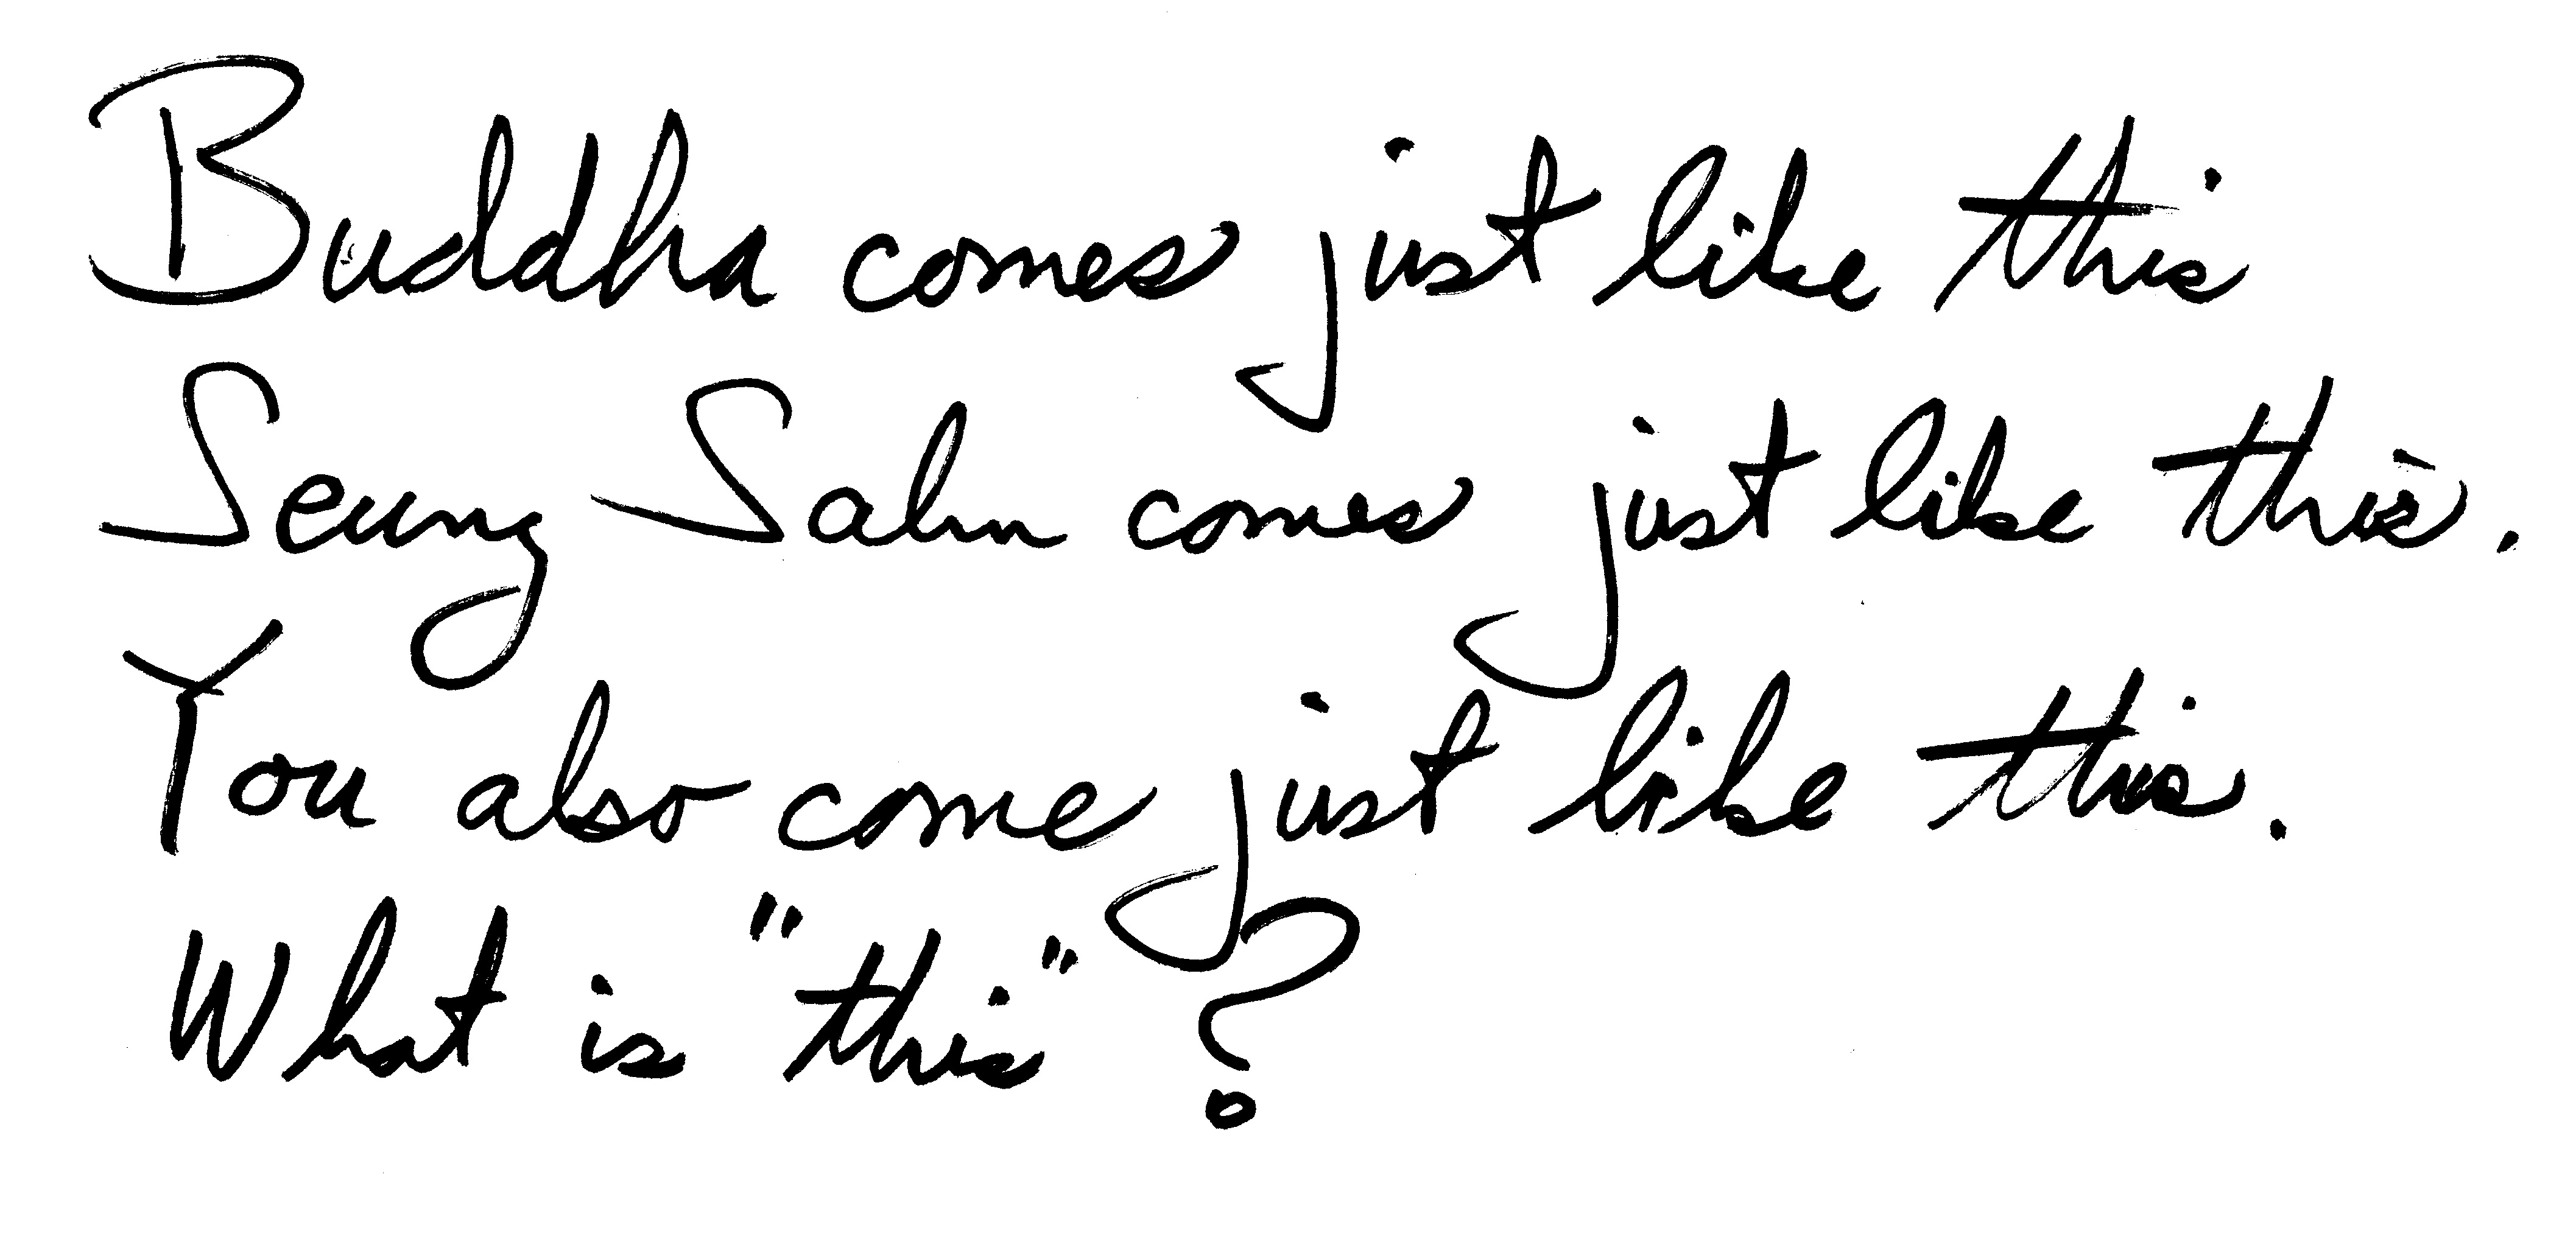 Buddha comes just like this
Seung Sahn comes just like this.
You also come just like this.
What is "this"?